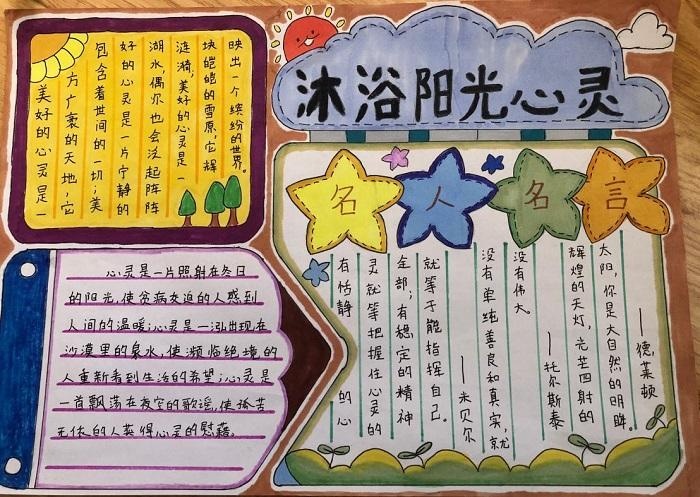 沐浴阳光心灵
美好的心灵是一
方广袤的天地,它
包含着世间的一切;美
好的心灵是一片宁静的
湖水偶尔也会泛起阵阵
涟漪;美好的心灵是一
块皑皑的雪原,它辉
映出一个缤纷的世界。
名人名言
有恬静的心
灵就等把握住心灵的
全部;有稳定的精神
就等于能指挥自己。
——米贝尔
没有单纯善良和真实,就
没有伟大。
——托尔斯泰
辉煌的天灯,光芒四射的
太阳,你是大自然的明眸。
——德莱顿
心灵是一片照射在冬日
的阳光,使贫病交迫的人感到
人间的温暖;心灵是一泓出现在
沙漠里的泉水,使濒临绝境的
人重新看到生活的希望;心灵是
一首飘荡在夜空的歌谣,使孤苦
无依的人获得心灵的慰藉。